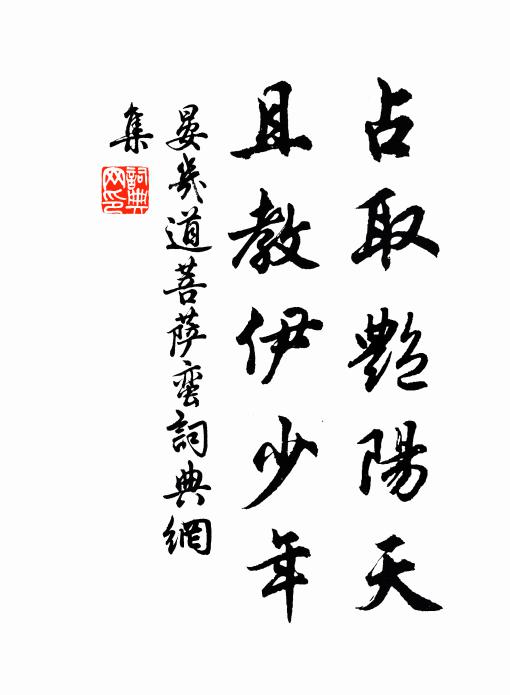 占取艷陽天
且教伊少年
晏幾道菩薩蠻詞典網
集
詞典网印